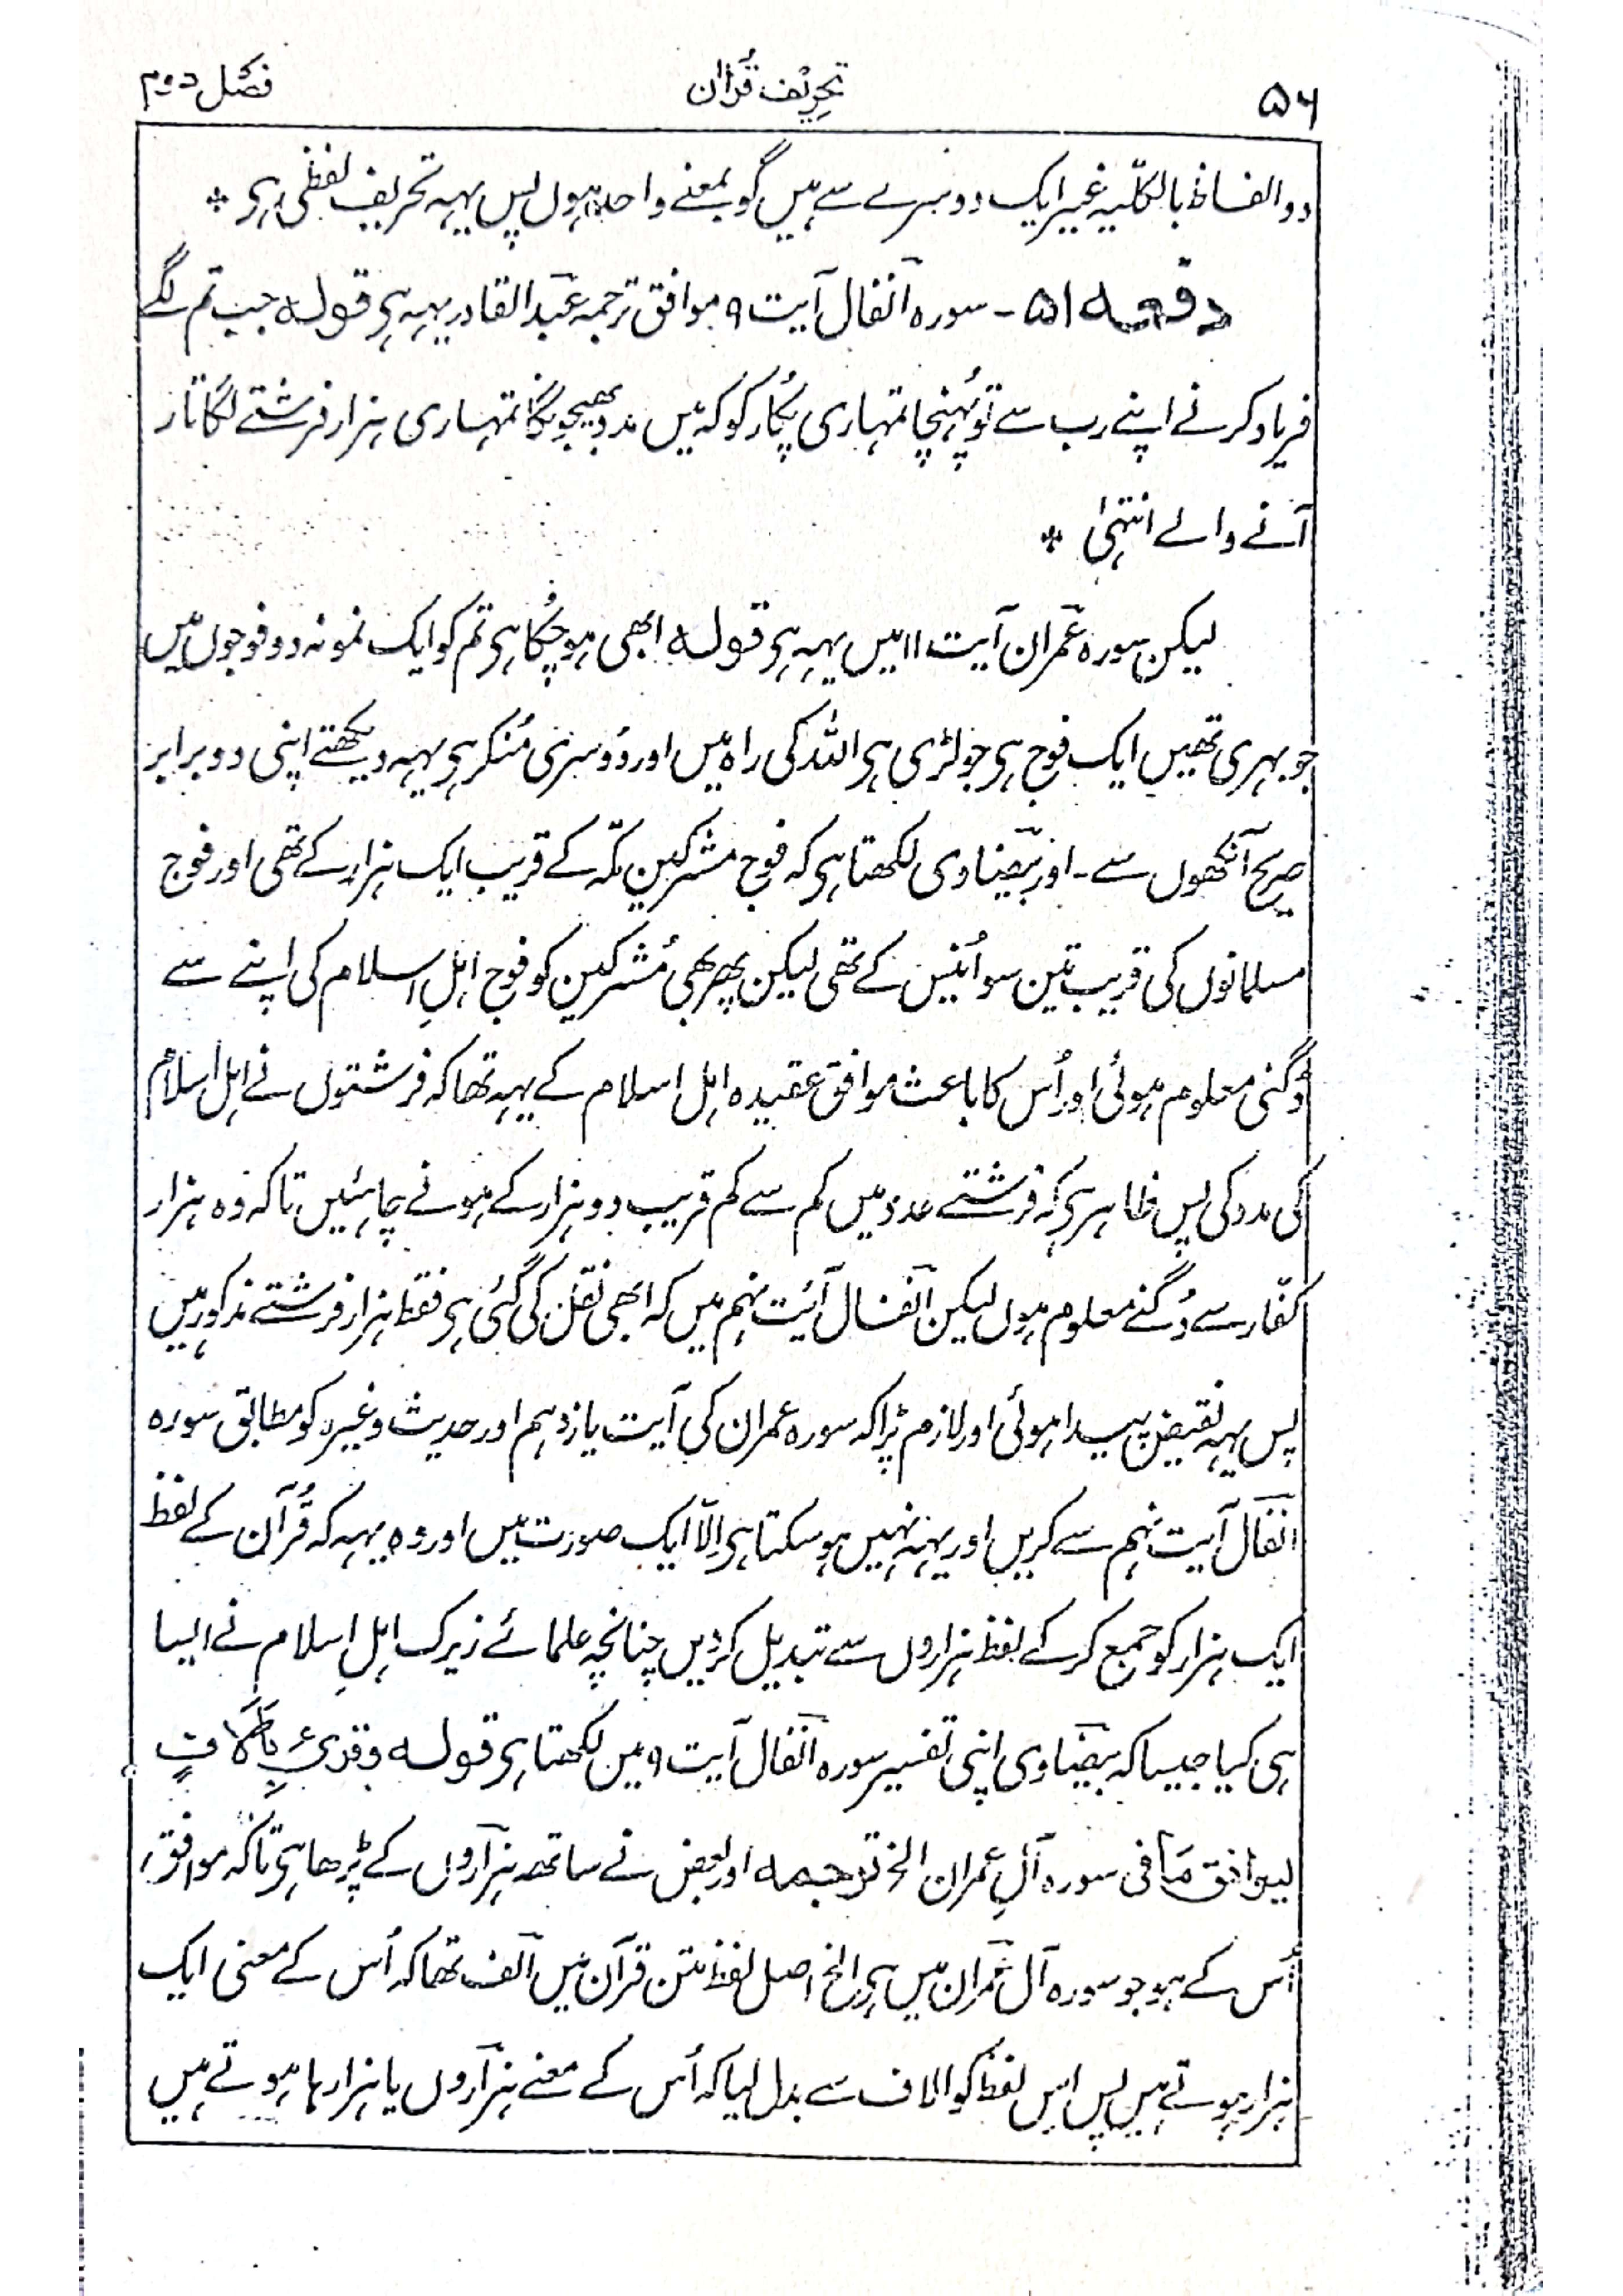 ۵۶ تحریف قرآن فصل دوم
دو الفاظ بالکلّیہ غیر ایک دوسرے سے ہیں گو بمعنے واحد ہوں پس یہہ تحریف لفظی ہی *
دفعہ ۵۱ - سورہ انفال آیت ۹ موافق ترجمہ عبد القادر یہہ ہی قولہ جب تم لگے
فریاد کرنے اپنے رب سے تو پُہنچا تمہاری پُکار کو کہ میں مدد بھیجونگا تمہاری ہزار فرشتے لگاتار
آنے والے انتہیٰ *
لیکن سورہ عمران آیت ۱۱ میں یہہ ہی قولہ ابھی ہو چُکا ہی تم کو ایک نمونہ دو فوجوں میں
جو بہری تھیں ایک فوج ہی جو لڑی ہی اللہ کی راہ میں اور دُوسری مُنکر ہی یہہ دیکھتے اپنی دو برابر
صریح آنکھوں سے - اور بیضاوی لکھتا ہی کہ فوج مشرکین مکّہ کے قریب ایک ہزار کے تھی اور فوج
مسلمانوں کی قریب تین سو اُنیس کے تھی لیکن پھر بھی مُشرکین کو فوج اہلِ اسلام کی اپنے سے
دُگنی معلوم ہوئی اور اُس کا باعث موافق عقیدہ اہل اسلام کے یہہ تھا کہ فرشتوں نے اہل اسلام
کی مدد کی پس ظاہر ہی کہ فرشتے عدد میں کم سے کم قریب دو ہزار کے ہونے چاہئیں تاکہ وہ ہزار
کفّار سے دُگنے معلوم ہوں لیکن انفال آیت نہم میں کہ ابھی نقل کی گئی ہی فقط ہزار فرشتے مذکور ہیں
پس یہہ نقیض پیدا ہوئی اور لازم پڑا کہ سورہ عمران کی آیت یازدہم اور حدیث وغیرہ کو مطابق سورہ
انفال آیت نہم سے کریں اور یہہ نہیں ہو سکتا ہی اِلّا ایک صورت میں اور وہ یہہ کہ قُرآن کے لفظ
ایک ہزار کو جمع کر کے لفظ ہزاروں سے تبدیل کر دیں چنانچہ علمائے زیرک اہلِ اسلام نے ایسا
ہی کیا جیسا کہ بیضاوی اپنی تفسیر سورہ انفال آیت ۹ میں لکھتا ہی قولہ وقرئ بِاٰلَافٍ
لیوافق مَا فی سورہ آلِ عمران الخ ترجمہ اور بعض نے ساتھ ہزاروں کے پڑھا ہی تاکہ موافق
اُس کے ہو جو سورہ آل عمران میں ہی الخ اصل لفظ متن قرآن میں الف تھا کہ اُس کے معنی ایک
ہزار ہوتے ہیں پس اس لفظ کو الاف سے بدل لیا کہ اُس کے معنے ہزاروں یا ہزارہا ہوتے ہیں